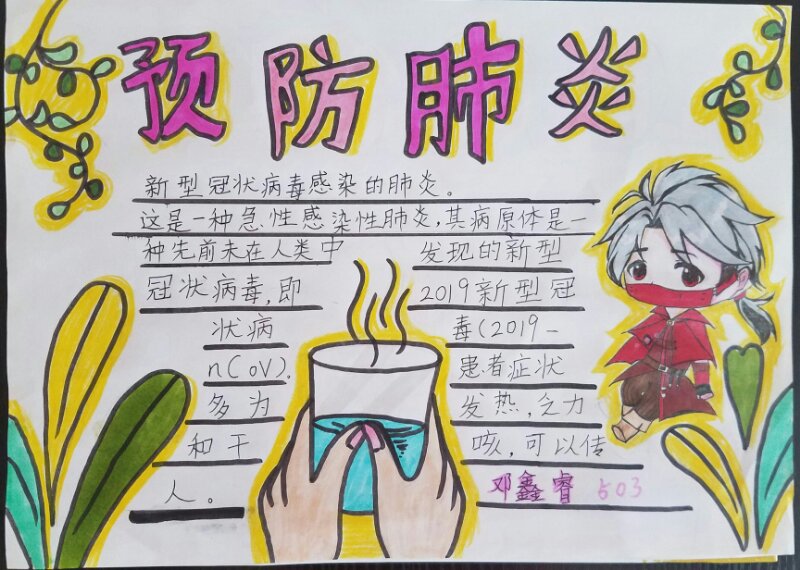 预防肺炎
新型冠状病毒感染的肺炎。
这是一种急性感染性肺炎,其病原体是一
种先前未在人类中发现的新型
冠状病毒,即2019新型冠
状病毒(2019-
nCoV).患者症状
多为发热,乏力
和干咳,可以传
人。
邓鑫睿 503